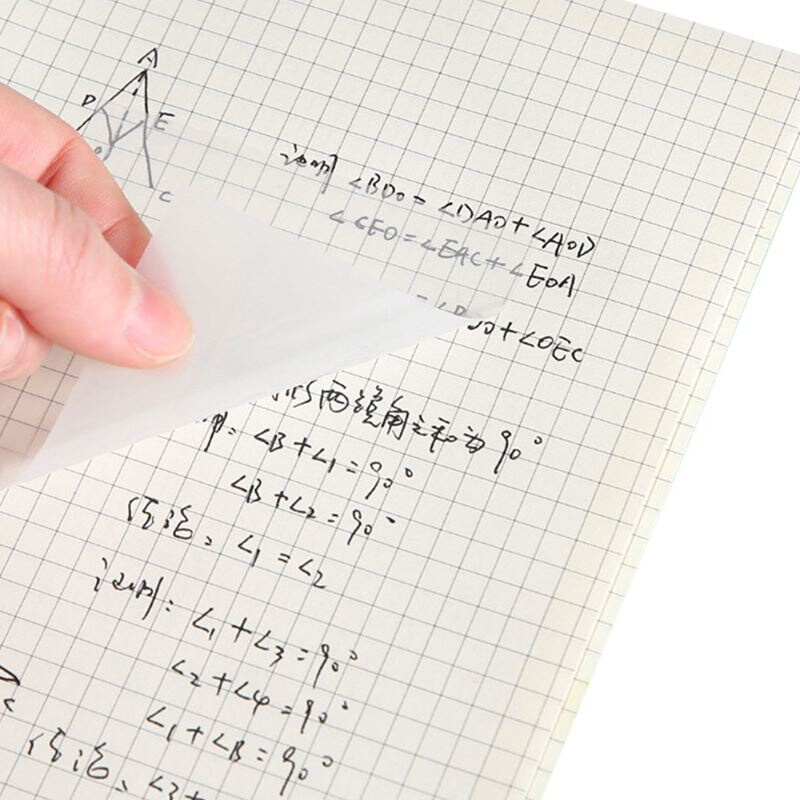 A
D E
O
C
证明 ∠BDO = ∠DAO + ∠AOD
∠CEO = ∠EAC + ∠EOA
+ ∠OEC
两锐角之和为90°
∠B + ∠1 = 90°
∠B + ∠2 = 90°
结论、∠1 = ∠2
证明: ∠1 + ∠3 = 90°
∠2 + ∠4 = 90°
∠1 + ∠B = 90°
结论、∠3 +